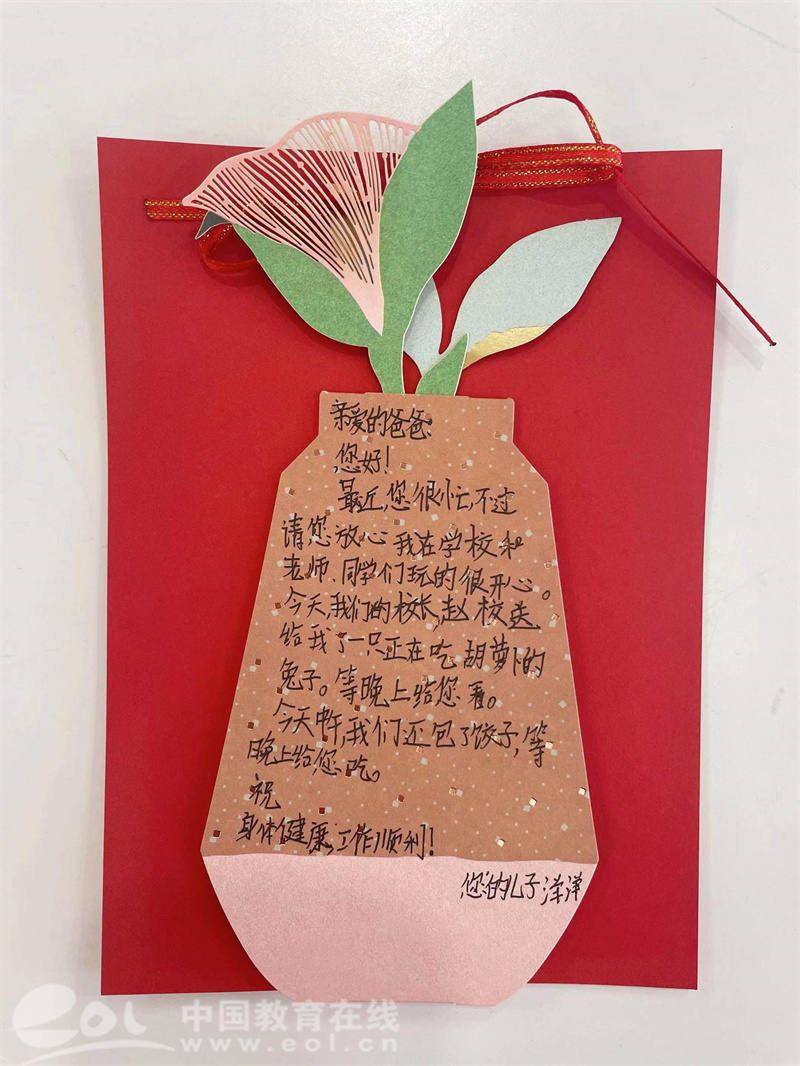 亲爱的爸爸:
您好!
最近,您很忙,不过
请您放心我在学校和
老师、同学们玩的很开心。
今天,我们的校长,赵校长
给我了一只正在吃胡萝卜的
兔子。等晚上给您看。
今天中午,我们还包了饺子,等
晚上给您吃。
祝
身体健康,工作顺利!
您的儿子洋洋
eol 中国教育在线
www.eol.cn